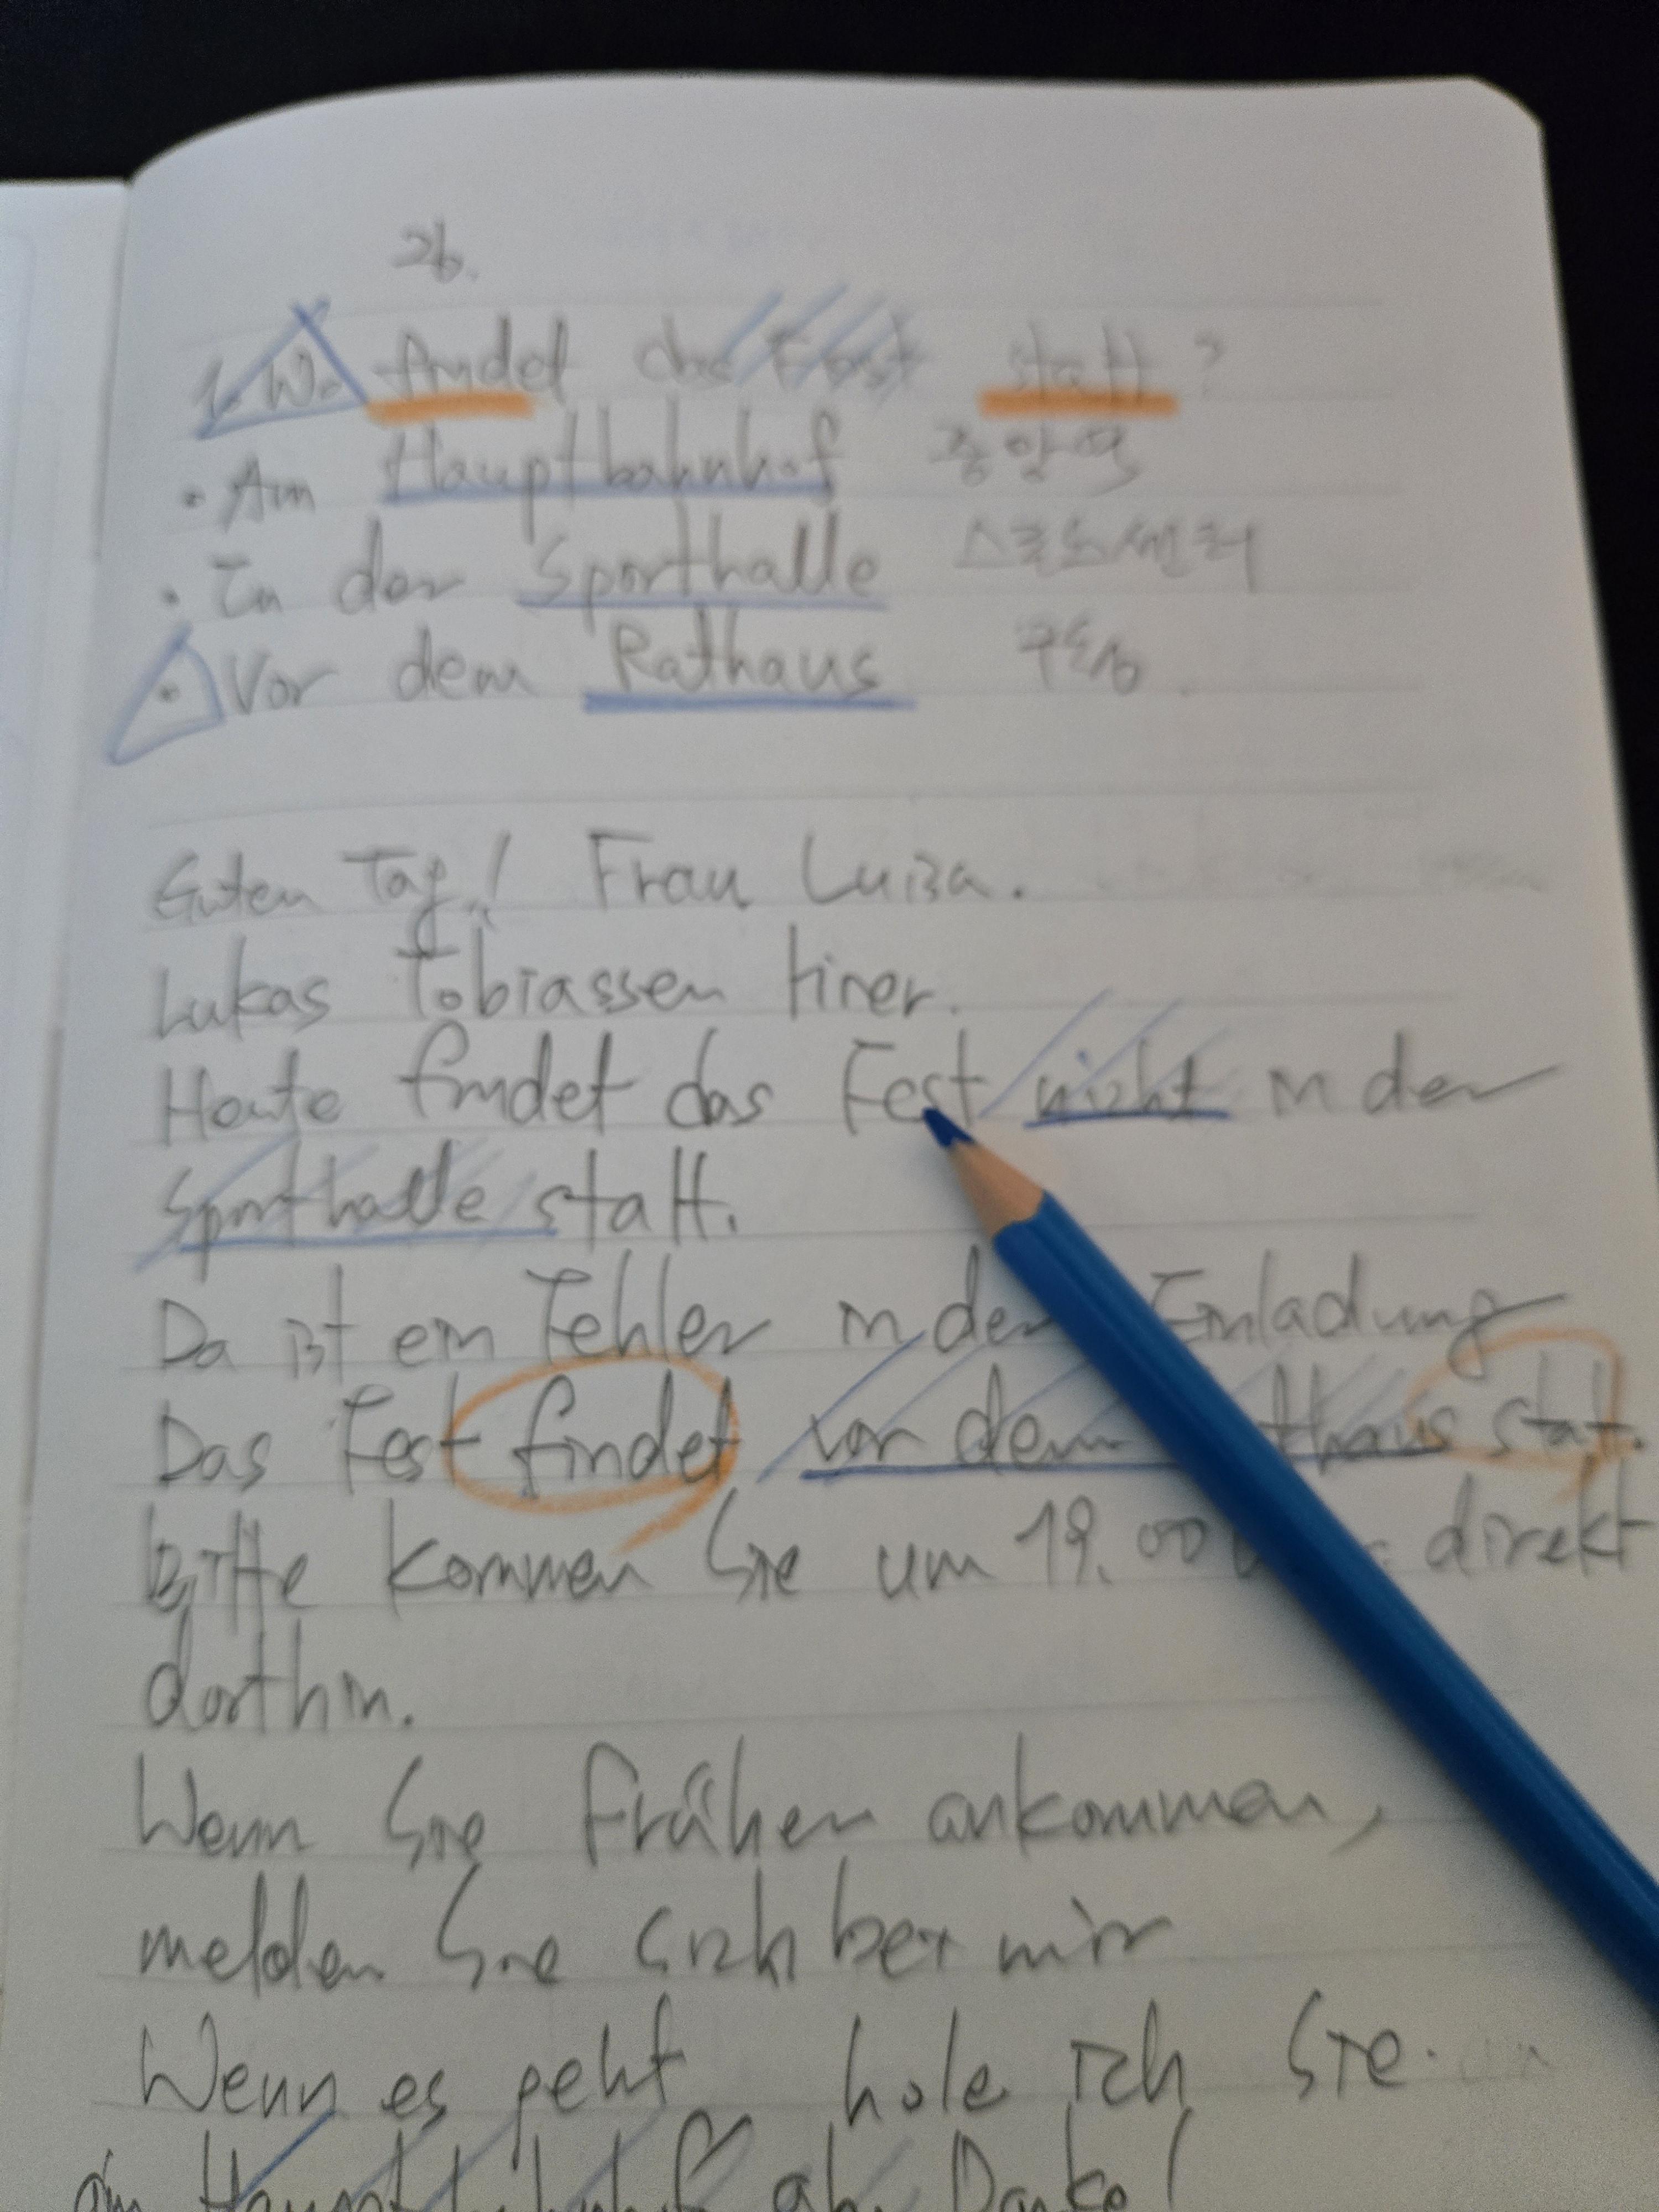 26.
1. Wo findet das Fest statt ?
· Am Hauptbahnhof 중앙역
· In der Sporthalle 스포츠센터
· Vor dem Rathaus
Guten Tag! Frau Luiza.
Lukas Tobiassen hier.
Heute findet das Fest nicht in der
Sporthalle statt.
Da ist ein Fehler in der Einladung
Das Fest findet vor dem statt.
Bitte kommen Sie um 19.00 direkt
dorthin.
Wenn Sie früher ankommen,
melden Sie sich bei mir
Wenn es geht hole ich Sie
am Hauptbahnhof ab. Danke!